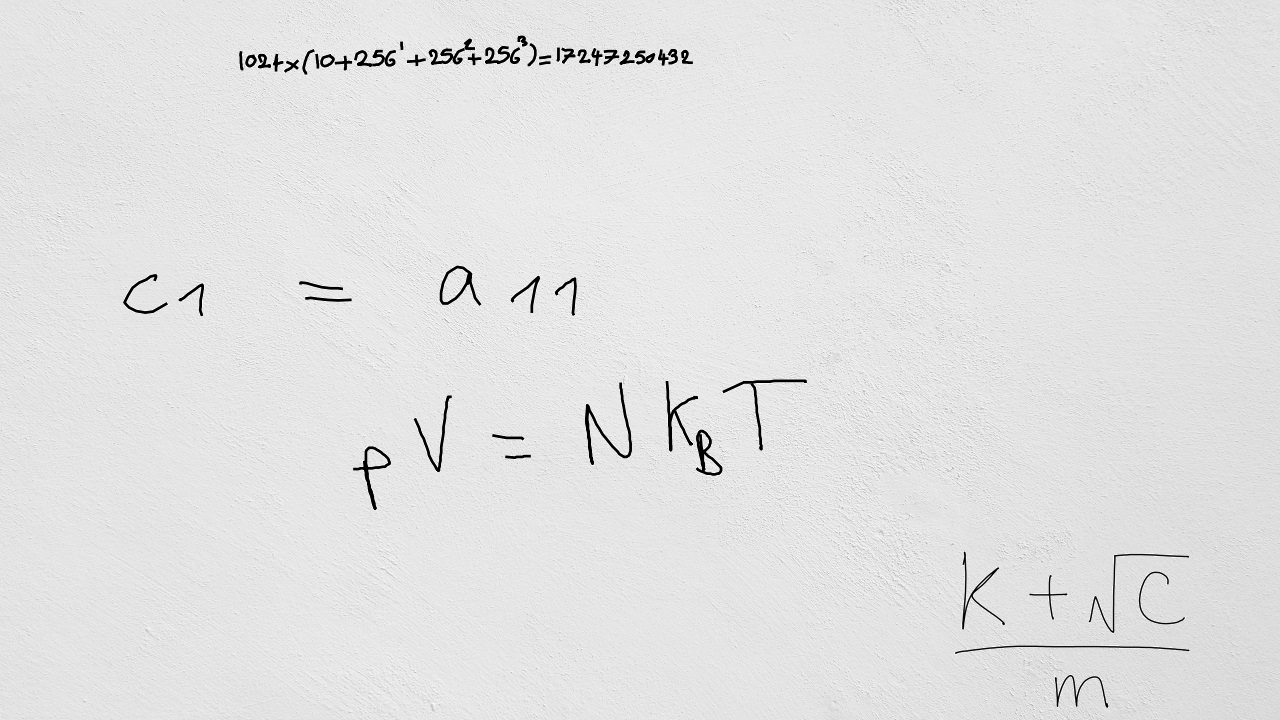 1024×(10+256¹+256²+256³)=17247250432
c1 = a11
pV = Nk_BT
(K+√C)/m